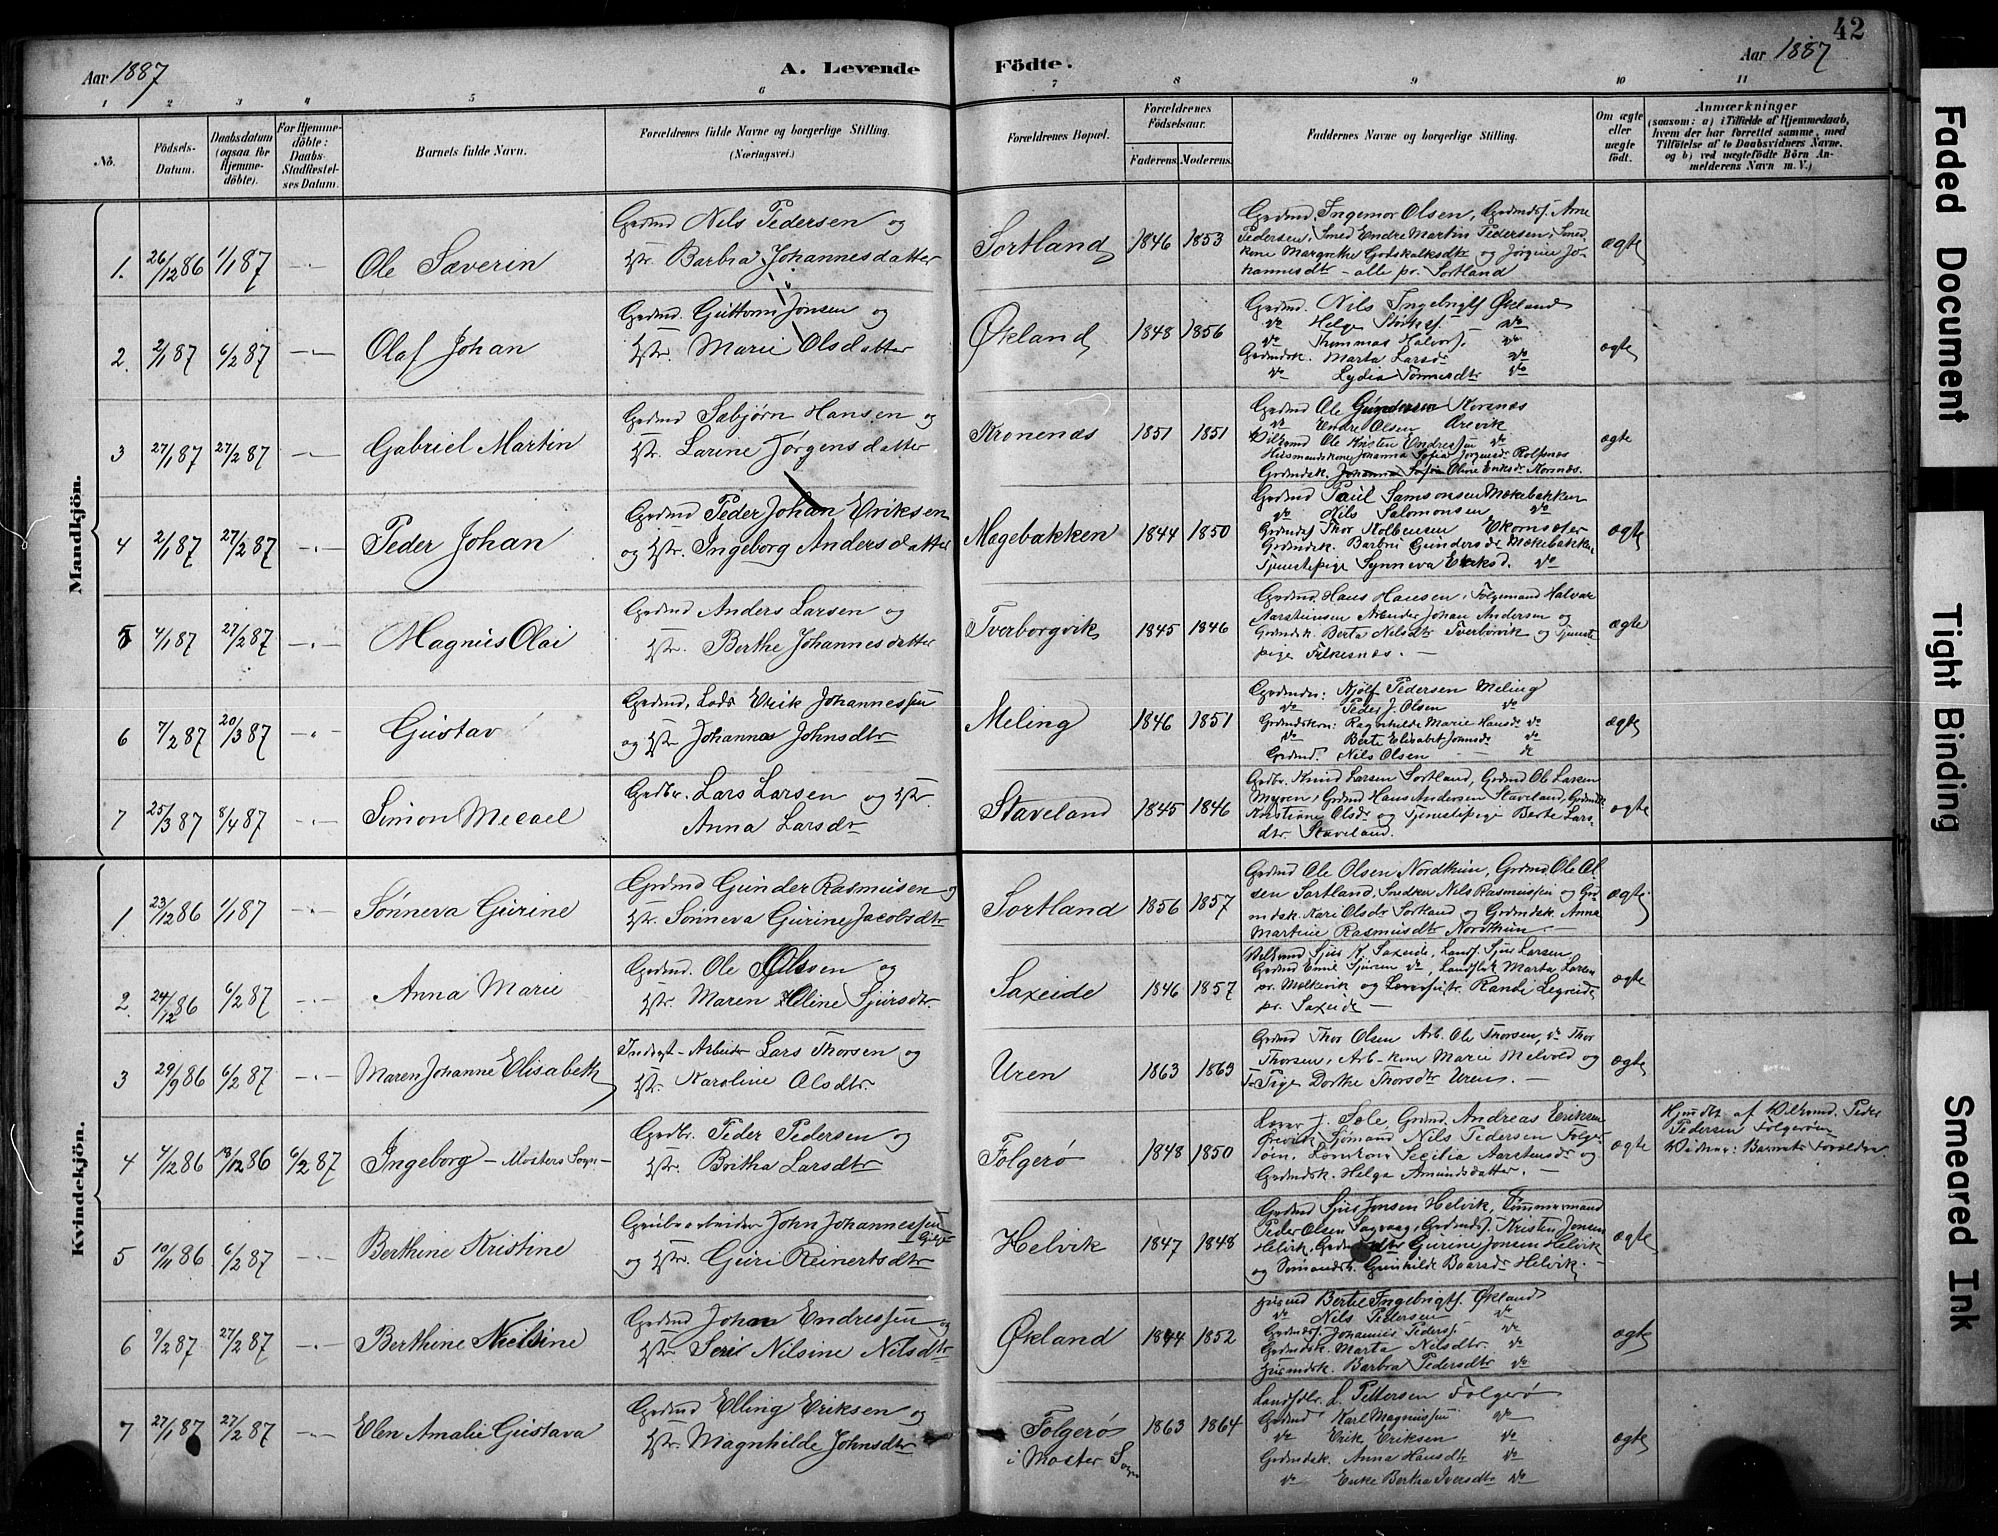 42
Aar 1887
A. Levende
Födte.
Aar 1887
1 2 3 4 5 6 7 8 9 10 11
No.
Födsels-Datum.
Daabsdatum (ogsaa for Hjemme-döbte).
For Hjemme-döbte: Daabs-Stadfæstel-ses Datum.
Barnets fulde Navn.
Forældrenes fulde Navne og borgerlige Stilling.
(Næringsvei.)
Forældrenes Bopæl.
Forældrenes Födselsaar.
Faderens. Moderens.
Faddernes Navne og borgerlige Stilling.
Om ægte eller uægte födt.
Anmærkninger
(saasom: a) i Tilfælde af Hjemmedaab, hvem der har forrettet samme, med Tilföielse af to Daabsvidners Navne. og b) ved uægtefödte Börn An-melderens Navn m. V.)
Mandkjön.
1. 26/12 86 1/1 87 Ole Sæverin
Grdmd Nils Pedersen og
Hstr. Barbra Johannesdatter
Sortland 1846 1853
Grdmd. Ingemor Olsen, Grdmdsf. Arne
Pedersen, Smed Endre Martin Pedersen, Smed
kone Margrethe Godskalksdtr og Jørgine Jo-
hannesdtr - alle pr. Sortland
ægte
2. 2/1 87 6/2 87 Olaf Johan
Grdmd. Guttorm Jonsen og
Hstr. Marie Olsdatter
Økland 1848 1856
Grdmd. Nils Ingebrigts. Økland
do Helge do
do Thommas Halvors. do
Grdmdsk. Marta Larsdr do
do Lydia Tønnesdtr do
ægte
3 27/1 87 27/2 87 Gabriel Martin
Grdmd Sæbjørn Hansen og
Hstr. Larine Jørgensdatter
Kronenæs 1851 1851
Grdmd Ole Gundersen Kornæs
do Endre Olsen Orevik
Ole Kristen Endressen do
Husmandskone Johanna Sofia Jørgensdr Rolfsnæs
Grdmdsk. Johanna Sofia Oline Eriksdr Kornæs.
ægte
4 2/1 87 27/2 87 Peder Johan
Grdmd Peder Johan Eriksen
og Hstr. Ingeborg Andersdatter
Møgebakken 1844 1850
Grdmd Paul Samsonsen Møkebakken
do Nils Salomonsen do
Grdmdsf Thor Kolbensen Ekornsæter
Grdmdsk. Barbru Gundersdr Møkebakken
Tjenestepige Synneva Eriksd. do
ægte
5 4/1 87 27/2 87 Magnus Olai
Grdmd Anders Larsen og
Hstr. Berthe Johannesdatter
Tverborgvik 1845 1846
Grdmd. Hans Hansen, Følgemand Halvar
Aarstensen Arbeider Johan Andersen og
Grdmdsk. Berta Nilsdtr Tverborvik og Tjeneste
pige Filkesnæs. -
ægte
6 7/2 87 20/3 87 Gustav
Grdmd, Lods Erik Johannessen
og Hstr. Johanna Johnsdtr
Meling 1846 1851
Grdmdr: Njølf Pedersen Meling
do Peder J. Olsen do
Grdmdskon: Ragnhilde Marie Hansdr do
do Berte Elisabet Johnsdr do
Grdmd. Nils Olsen do
ægte
7 25/3 87 8/4 87 Simon Mecael
Grdbr. Lars Larsen og Hstr.
Anna Larsdr
Staveland 1845 1846
Grdbr. Knud Larsen Sortland, Grdmd Ole Larsen
Myren, Grdmd Hans Andersen Staveland, Grdmdsk.
Korstiane Olsdr og Tjenestepige Berte Lars-
dtr. Staveland.
ægte
Kvindekjön.
1 23/12 86 1/1 87 Sønneva Gurine
Grdmd Gunder Rasmusen og
Hstr. Sønneva Gurine Jacobsdtr
Sortland 1856 1857
Grdmd Ole Olsen Nordhun, Grdmd Ole Ol
sen Sortland. Snedker Nils Rasmussen og Grd
mdsk. Kari Olsdr Sortland og Grdmdsk. Anna
Martine Rasmusdtr Nordhun. -
ægte.
2 24/12 86 6/2 87 Anna Marie
Grdmd. Ole Olssen og
Hstr. Maren Oline Sjursdtr.
Saxeide 1846 1857
Sjur K. Saxeide, Sjur Larsen
Grdmd Emil Sjursen do, Marta Larsen
pr. Mølkevik og Randi
pr. Saxeide -
ægte
3 29/9 86 6/2 87 Maren Johanne Elisabeth
Indvgt-Arbeider Lars Thorsen og
Hstr. Karoline Olsdtr.
Uren 1863 1863
Grdmd Thor Olsen Arb. Ole Thorsen, do Thor
Thorsen, Arb-kone Marie Melvold og
Pige Dorthe Thorsdtr Uren. -
ægte
4 4/12 86 13/12 86 6/2 87 Ingeborg - Mosters Sogn -
Grdbr. Peder Pedersen og
Hstr. Britha Larsdtr
Folgerø 1848 1850
Lærer J. Sole, Grdmd. Andreas Eriksen
Orevik Sjømand Nils Pedersen Folge
røen, Cecilia Aarstensdr og
Grdmdsk. Helga Amundsdatter. -
ægte
Hjmdbt af Peder
Pedersen Folgerøen
Vidner: Barnets Forældre.
5 10/11 86 6/2 87 Berthine Kristine
Grubearbeider John Johannessen
og Hstr. Guri Reinertsdtr
Helvik 1847 1848
Grdmd Sjur Jonsen Helvik, Tømmermand
Peder Olsen Sagvaag, Grdmdsf. Kristen Jonsen
Helvik, Gurine Jonsen Helvik
og Gunhilde Baarsdr Helvik.
ægte
6 9/2 87 27/2 87 Berthine Nielsine
Grdmd Johan Endressen og
Hstr. Seri Nilsine Nilsdtr
Økland 1844 1852
Husmd Bertel Ingebrigts. Økland
do Nils Pedersen do
Grdmdsf. Johannes Peders. do
Grdmdsk. Marta Nilsdtr do
Husmdsk. Barbra Pedersdtr do
ægte
7 27/1 87 27/2 87 Elen Amalie Gustava
Grdmd Elling Eriksen og
Hstr. Magnhilde Johnsdtr
Folgerø 1863 1864
i Moster Sogn
Landhdlr. L. Pettersen Folgerø
Grdmd Karl Magnussen do
do Erik Eriksen do
Grdmdsk. Anna Hansdtr do
do Enke Bertha Iversdtr do
ægte
Faded Document
Tight Binding
Smeared Ink